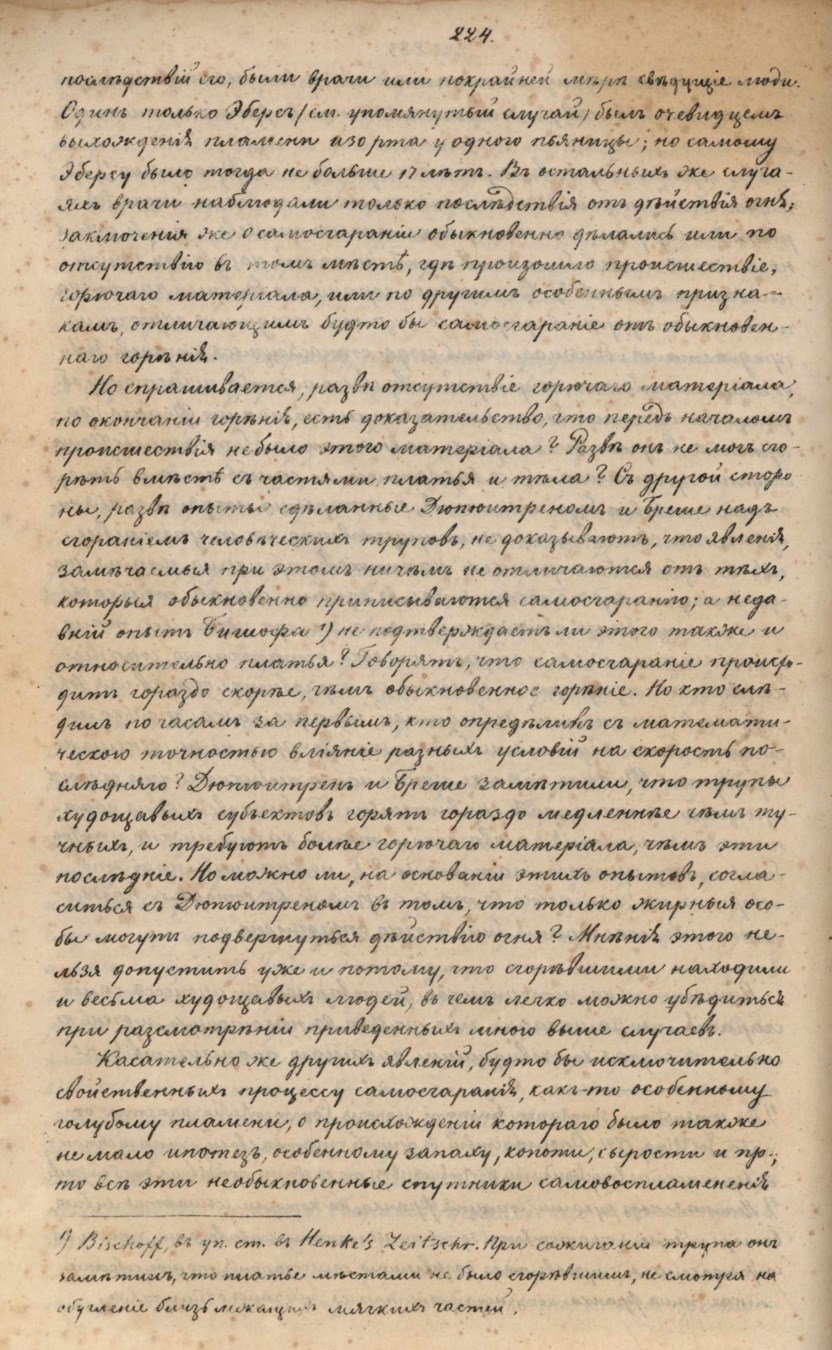 224.
послѣдствій его, были врачи или покрайней мѣрѣ свѣдущіе люди.
Одинъ только Эберсъ (см. упомянутый случай) былъ очевидцемъ
выхожденія пламени изо рта у одного пьяницы; но самому
Эберсу было тогда не больше 17 лѣтъ. Въ остальныхъ же случа-
яхъ врачи наблюдали только послѣдствія отъ дѣйствія огня;
заключенія же о самосгараніи обыкновенно дѣлались или по
отсутствію въ томъ мѣстѣ, гдѣ произошло происшествіе,
горючаго матеріала, или по другимъ особеннымъ призна-
камъ, отличающимъ будто бы самосгараніе отъ обыкновен-
наго горѣнія.
Но спрашивается, развѣ отсутствіе горючаго матеріала,
по окончаніи горѣнія, есть доказательство, что передъ началомъ
происшествія не было этого матеріала? Развѣ онъ не могъ сго-
рѣть вмѣстѣ съ частями платья и тѣла? Съ другой сторо
ны, развѣ опыты сдѣланные Дюпюитреномъ и Бреше надъ
сгораніемъ человѣческихъ труповъ, не доказываютъ, что явленія,
замѣчаемыя при этомъ ничѣмъ не отличаются отъ тѣхъ,
которыя обыкновенно приписываются самосгаранію; а неда-
вній опытъ Бишофа ¹) не подтверждаетъ ли этого также и
относительно платья? Говорятъ, что самосгараніе происхо-
дитъ гораздо скорѣе, чѣмъ обыкновенное горѣніе. Но кто слѣ-
дилъ по часамъ за первымъ, кто опредѣлилъ съ математи-
ческою точностью вліяніе разныхъ условій на скорость по-
слѣдняго? Дюпюитренъ и Бреше замѣтили, что трупы
худощавыхъ субъектовъ горятъ гораздо медленнѣе чѣмъ ту-
чныхъ, и требуютъ болѣе горючаго матеріала, чѣмъ эти
послѣдніе. Но можно ли, на основаніи этихъ опытовъ, согла-
ситься съ Дюпюитреномъ въ томъ, что только жирныя осо-
бы могутъ подвергнуться дѣйствію огня? Мнѣнія этого не-
льзя допустить уже и потому, что сгорѣвшими находили
и весьма худощавыхъ людей, въ чемъ легко можно убѣдиться
при разсмотрѣніи приведенныхъ мною выше случаевъ.
Касательно же другихъ явленій, будто бы исключительно
свойственныхъ процессу самосгаранія, какъ-то особенному
голубому пламени, о происхожденіи котораго было также
не мало ипотезъ, особенному запаху, копоти, сырости и пр.;
то всѣ эти необыкновенные спутники самовоспламененія
¹) Bischoff, въ уп. ст. въ Henke's Zeitschr. При сожиганіи трупа онъ
замѣтилъ, что платье мѣстами не было сгорѣвшимъ, не смотря на
обугленіе близълежащихъ мягкихъ частей.